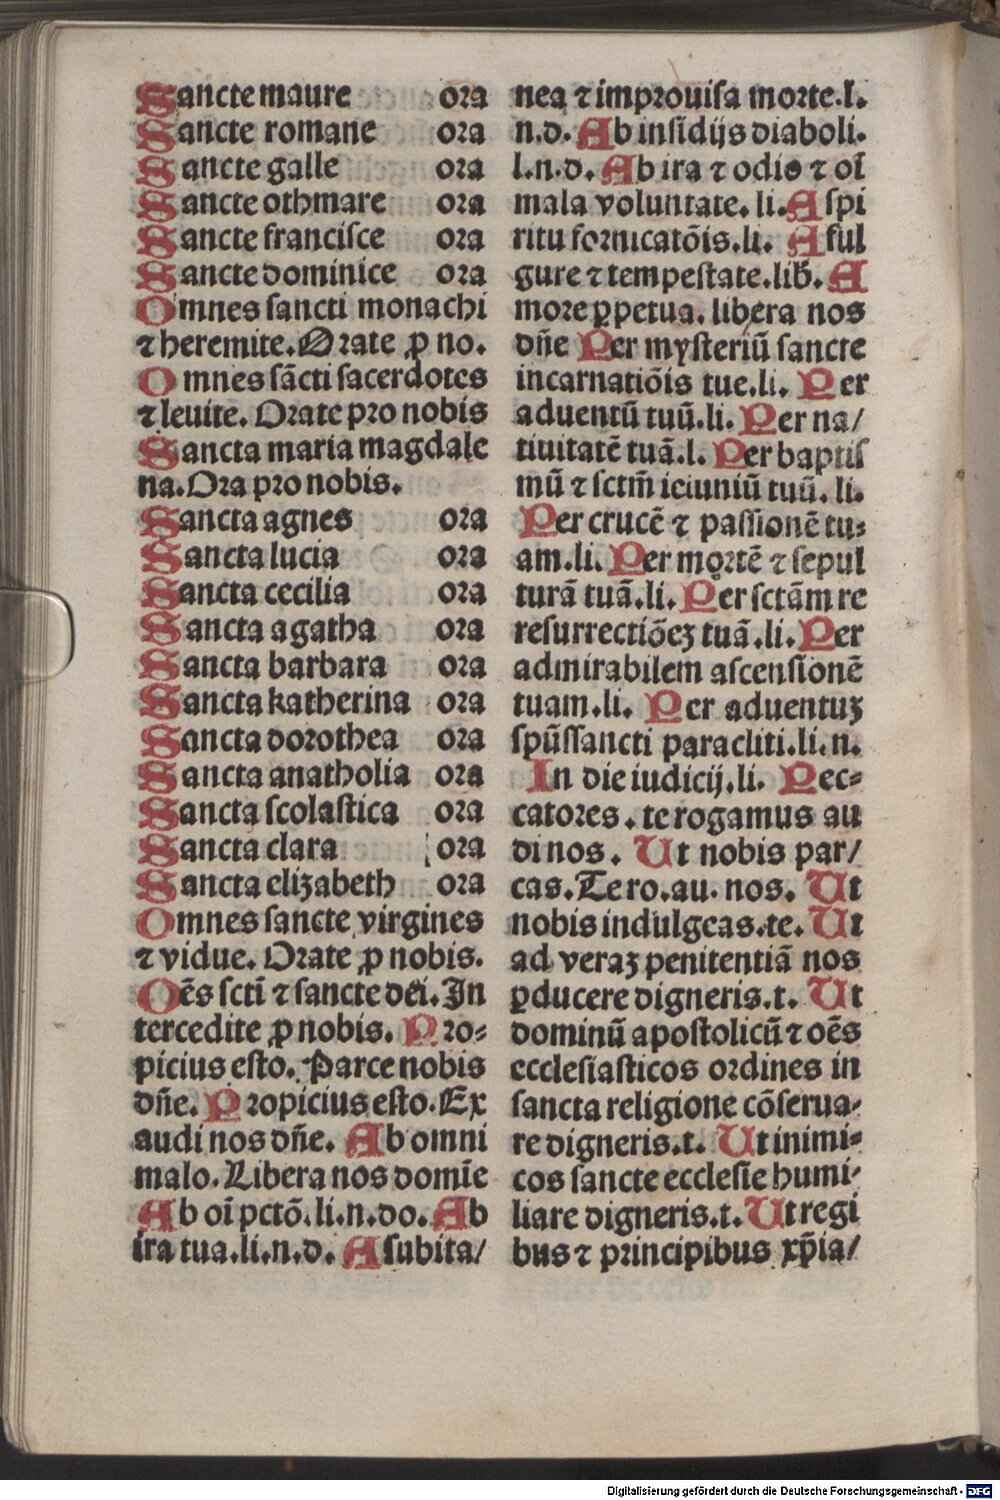 Sancte maure ora
Sancte romane ora
Sancte galle ora
Sancte othmare ora
Sancte franciſce ora
Sancte dominice ora
Omnes ſancti monachi
⁊ heremite. Orate ꝓ no.
Omnes ſācti ſacerdotes
⁊ leuite. Orate pro nobis
Sancta maria magdale
na. Ora pro nobis.
Sancta agnes ora
Sancta lucia ora
Sancta cecilia ora
Sancta agatha ora
Sancta barbara ora
Sancta katherina ora
Sancta dorothea ora
Sancta anatholia ora
Sancta ſcolaſtica ora
Sancta clara ora
Sancta eliʒabeth ora
Omnes ſancte virgines
⁊ vidue. Orate ꝓ nobis.
Oēs ſcti ⁊ ſancte dei. In
tercedite ꝓ nobis. Pro⸗
picius eſto. Parce nobis
dn̄e. Propicius eſto. Ex
audi nos dn̄e. Ab omni
malo. Libera nos domīe
Ab oī pctō. li. n. do. Ab
ira tua. li. n. d. A ſubita/
nea ⁊ improuiſa morte. l.
n. d. Ab inſidijs diaboli.
l. n. d. Ab ira ⁊ odio ⁊ oī
mala voluntate. li. A ſpi
ritu fornicatōis. li. A ful
gure ⁊ tempeſtate. lib̄. A
more ꝑpetua. libera nos
dn̄e Per myſteriū ſancte
incarnatiōis tue. li. Per
aduentū tuū. li. Per na/
tiuitatē tuā. l. Per baptiſ
mū ⁊ ſctm̄ ieiuniū tuū. li.
Per crucē ⁊ paſſionē tu⸗
am. li. Per mortē ⁊ ſepul
turā tuā. li. Per ſctām re
reſurrectiōeʒ tuā. li. Per
admirabilem aſcenſionē
tuam. li. Per aduentuʒ
ſpūſſancti paracliti. li. n.
In die iudicij. li. Pec⸗
catores. te rogamus au
di nos. Ut nobis par/
cas. Te ro. au. nos. Ut
nobis indulgeas. te. Ut
ad veraʒ penitentiā nos
ꝑducere digneris. t. Ut
dominū apoſtolicū ⁊ oēs
eccleſiaſticos ordines in
ſancta religione cōſerua⸗
re digneris. t. Ut inimi⸗
cos ſancte eccleſie humi⸗
liare digneris. t. Ut regi
bus ⁊ principibus xp̄ia/
Digitalisierung gefördert durch die Deutsche Forschungsgemeinschaft - DFG